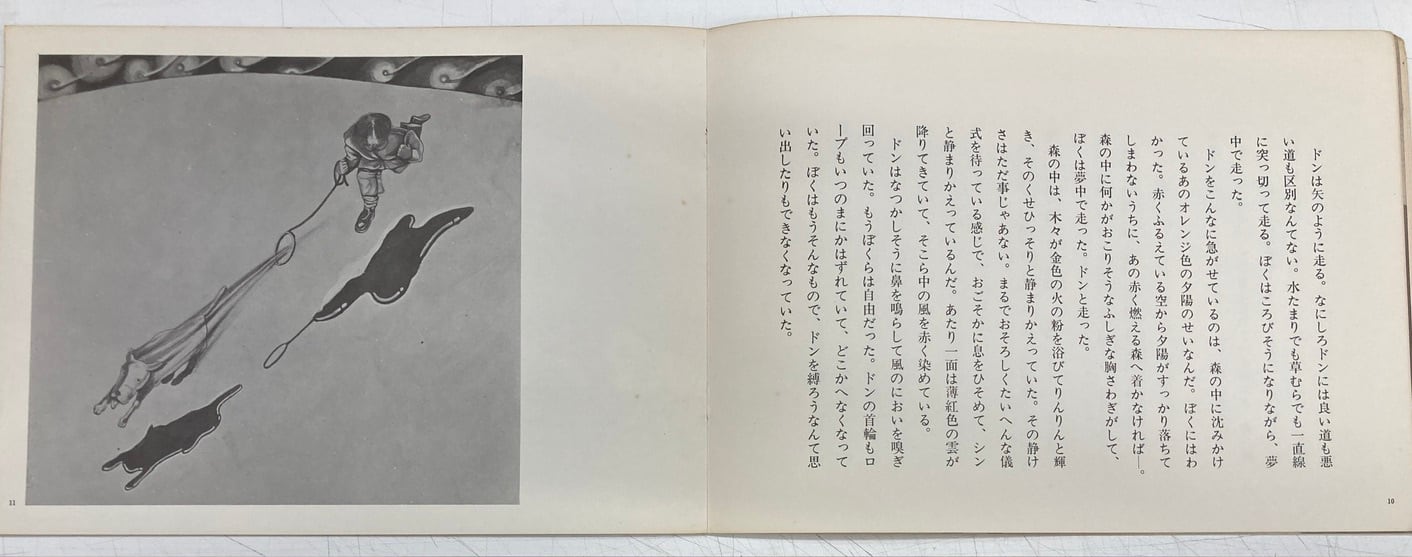 ドンは矢のように走る。なにしろドンには良い道も悪
い道も区別なんてない。水たまりでも草むらでも一直線
に突っ切って走る。ぼくはころびそうになりながら、夢
中で走った。
ドンをこんなに急がせているのは、森の中に沈みかけ
ているあのオレンジ色の夕陽のせいなんだ。ぼくにはわ
かった。赤くふるえている空から夕陽がすっかり落ちて
しまわないうちに、あの赤く燃える森へ着かなければ──。
森の中に何かがおこりそうなふしぎな胸さわぎがして、
ぼくは夢中で走った。ドンと走った。
森の中は、木々が金色の火の粉を浴びてりんりんと輝
き、そのくせひっそりと静まりかえっていた。その静け
さはただ事じゃあない。まるでおそろしくたいへんな儀
式を待っている感じで、おごそかに息をひそめて、シン
と静まりかえっているんだ。あたり一面は薄紅色の雲が
降りてきていて、そこら中の風を赤く染めている。
ドンはなつかしそうに鼻を鳴らして風のにおいを嗅ぎ
回っていた。もうぼくらは自由だった。ドンの首輪もロ
ープもいつのまにかはずれていて、どこかへなくなって
いた。ぼくはもうそんなもので、ドンを縛ろうなんて思
い出したりもできなくなっていた。
10
11